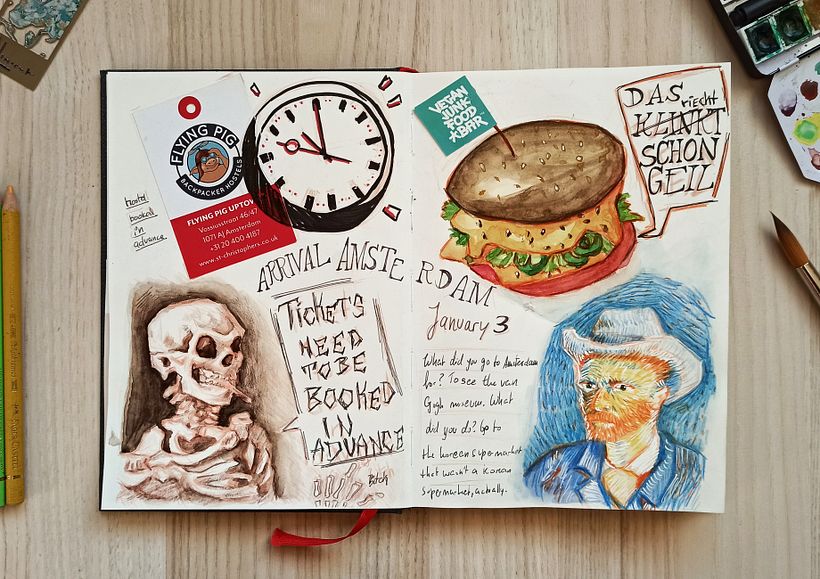 FLYING PIG
BACKPACKER HOSTELS
FLYING PIG UPTOW
Vossiusstraat 46/47
1071 AJ Amsterdam
+31 20 400 4187
www.st-christophers.co.uk
Hostel
booked
in
advance
ARRIVAL AMSTERDAM
January 3
TICKETS
NEED
TO BE
BOOKED
IN
ADVANCE
Bitch
VEGAN
JUNK
FOOD
BAR
DAS riecht
KLINKT
SCHON
GEIL
What did you go to Amsterdam
for? To see the van
Gogh museum. What
did you do? Go to
the korean supermarket
that wasn't a korean
supermarket, actually.